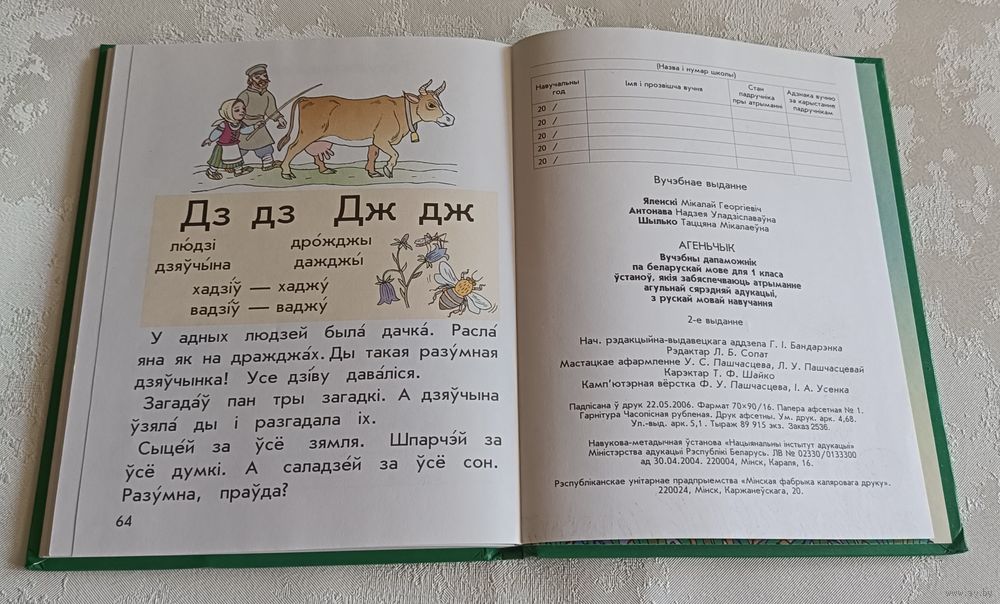 Дз дз Дж дж
лю́дзі дро́жджы
дзяўчы́на дажджы́
хадзі́ў — хаджу́
вадзі́ў — ваджу́
У адных людзей была́ дачка́. Расла́
яна як на дражджа́х. Ды такая разу́мная
дзяўчынка! Усе дзі́ву дава́ліся.
Загада́ў пан тры загадкі. А дзяўчына
ўзяла́ ды і разгадала іх.
Сыце́й за ўсё зямля. Шпарчэ́й за
ўсё думкі. А саладзе́й за ўсё сон.
Разу́мна, праўда?
64
(Назва і нумар школы)
Навучальны год
Імя і прозвішча вучня
Стан падручніка пры атрыманні
Адзнака вучню за карыстанне падручнікам
20 /
20 /
20 /
20 /
20 /
Вучэбнае выданне
Яленскі Мікалай Георгіевіч
Антонава Надзея Уладзіславаўна
Шылько Таццяна Мікалаеўна
АГЕНЬЧЫК
Вучэбны дапаможнік
па беларускай мове для 1 класа
ўстаноў, якія забяспечваюць атрыманне
агульнай сярэдняй адукацыі,
з рускай мовай навучання
2-е выданне
Нач. рэдакцыйна-выдавецкага аддзела Г. І. Бандарэнка
Рэдактар Л. Б. Сопат
Мастацкае афармленне У. С. Пашчасцева, Л. У. Пашчасцевай
Карэктар Т. Ф. Шайко
Камп'ютэрная вёрстка Ф. У. Пашчасцева, І. А. Усенка
Падпісана ў друк 22.05.2006. Фармат 70×90/16. Папера афсетная № 1.
Гарнітура Часопісная рубленая. Друк афсетны. Ум. друк. арк. 4,68.
Ул.-выд. арк. 5,1. Тыраж 89 915 экз. Заказ 2536.
Навукова-метадычная ўстанова «Нацыянальны інстытут адукацыі»
Міністэрства адукацыі Рэспублікі Беларусь. ЛВ № 02330/0133300
ад 30.04.2004. 220004, Мінск, Караля, 16.
Рэспубліканскае унітарнае прадпрыемства «Мінская фабрыка каляровага друку».
220024, Мінск, Каржанеўскага, 20.
www.ay.by